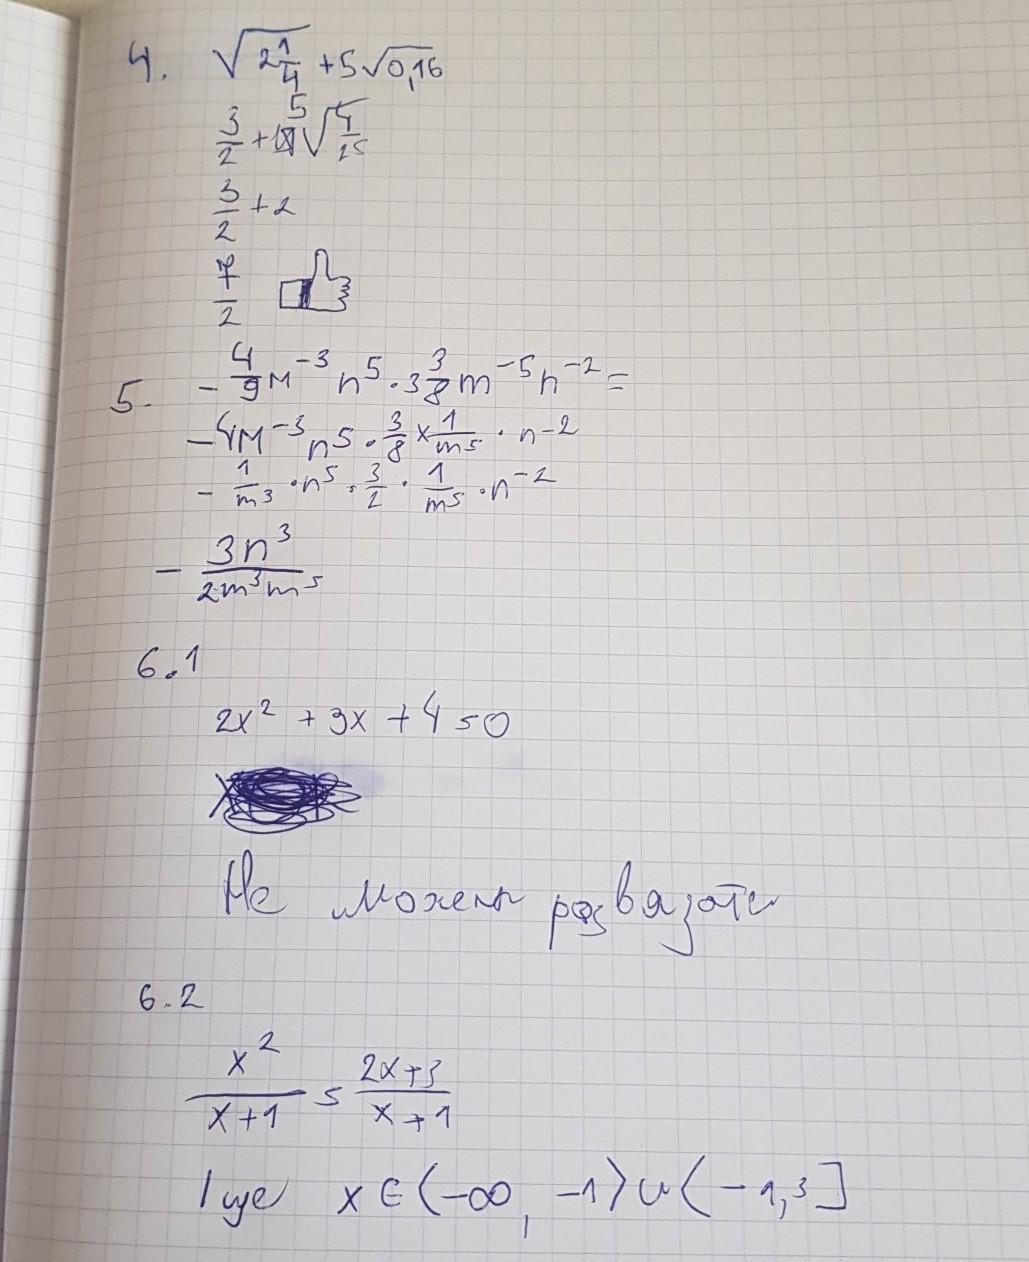 4. √2 1/4 + 5√0,16
3/2 + 5√4/25
3/2 + 2
7/2
5. - 4/9 м⁻³ n⁵ · 3 3/8 m⁻⁵ n⁻² =
- 4м⁻³ n⁵ · 3/8 × 1/m⁵ · n⁻²
- 1/m³ · n⁵ · 3/2 · 1/m⁵ · n⁻²
- 3n³/2m³m⁵
6.1
2x² + 3x + 4 = 0
Не можем розвязати
6.2
x²/x+1 = 2x+3/x+1
x ∈ (-∞, -1) ∪ (-1,3]